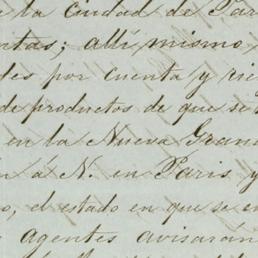 la ciudad de Par
ntas; allí mismo
des por cuenta y rie
de productos de que se
en la Nueva Gran
n á N. en Paris y
o, el estado en que se en
agentes avisarán